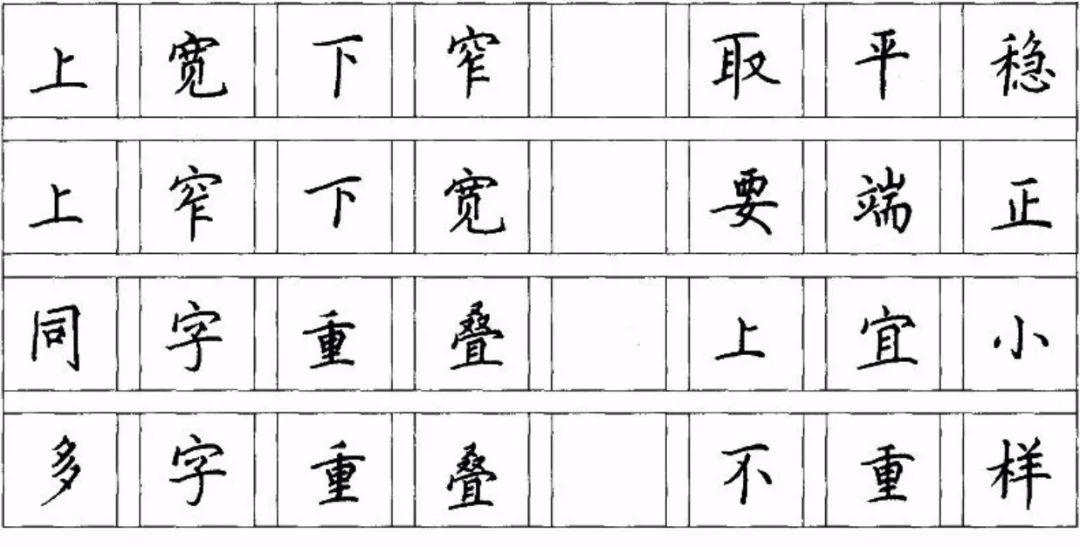 上宽下窄 取平稳
上窄下宽 要端正
同字重叠 上宜小
多字重叠 不重样